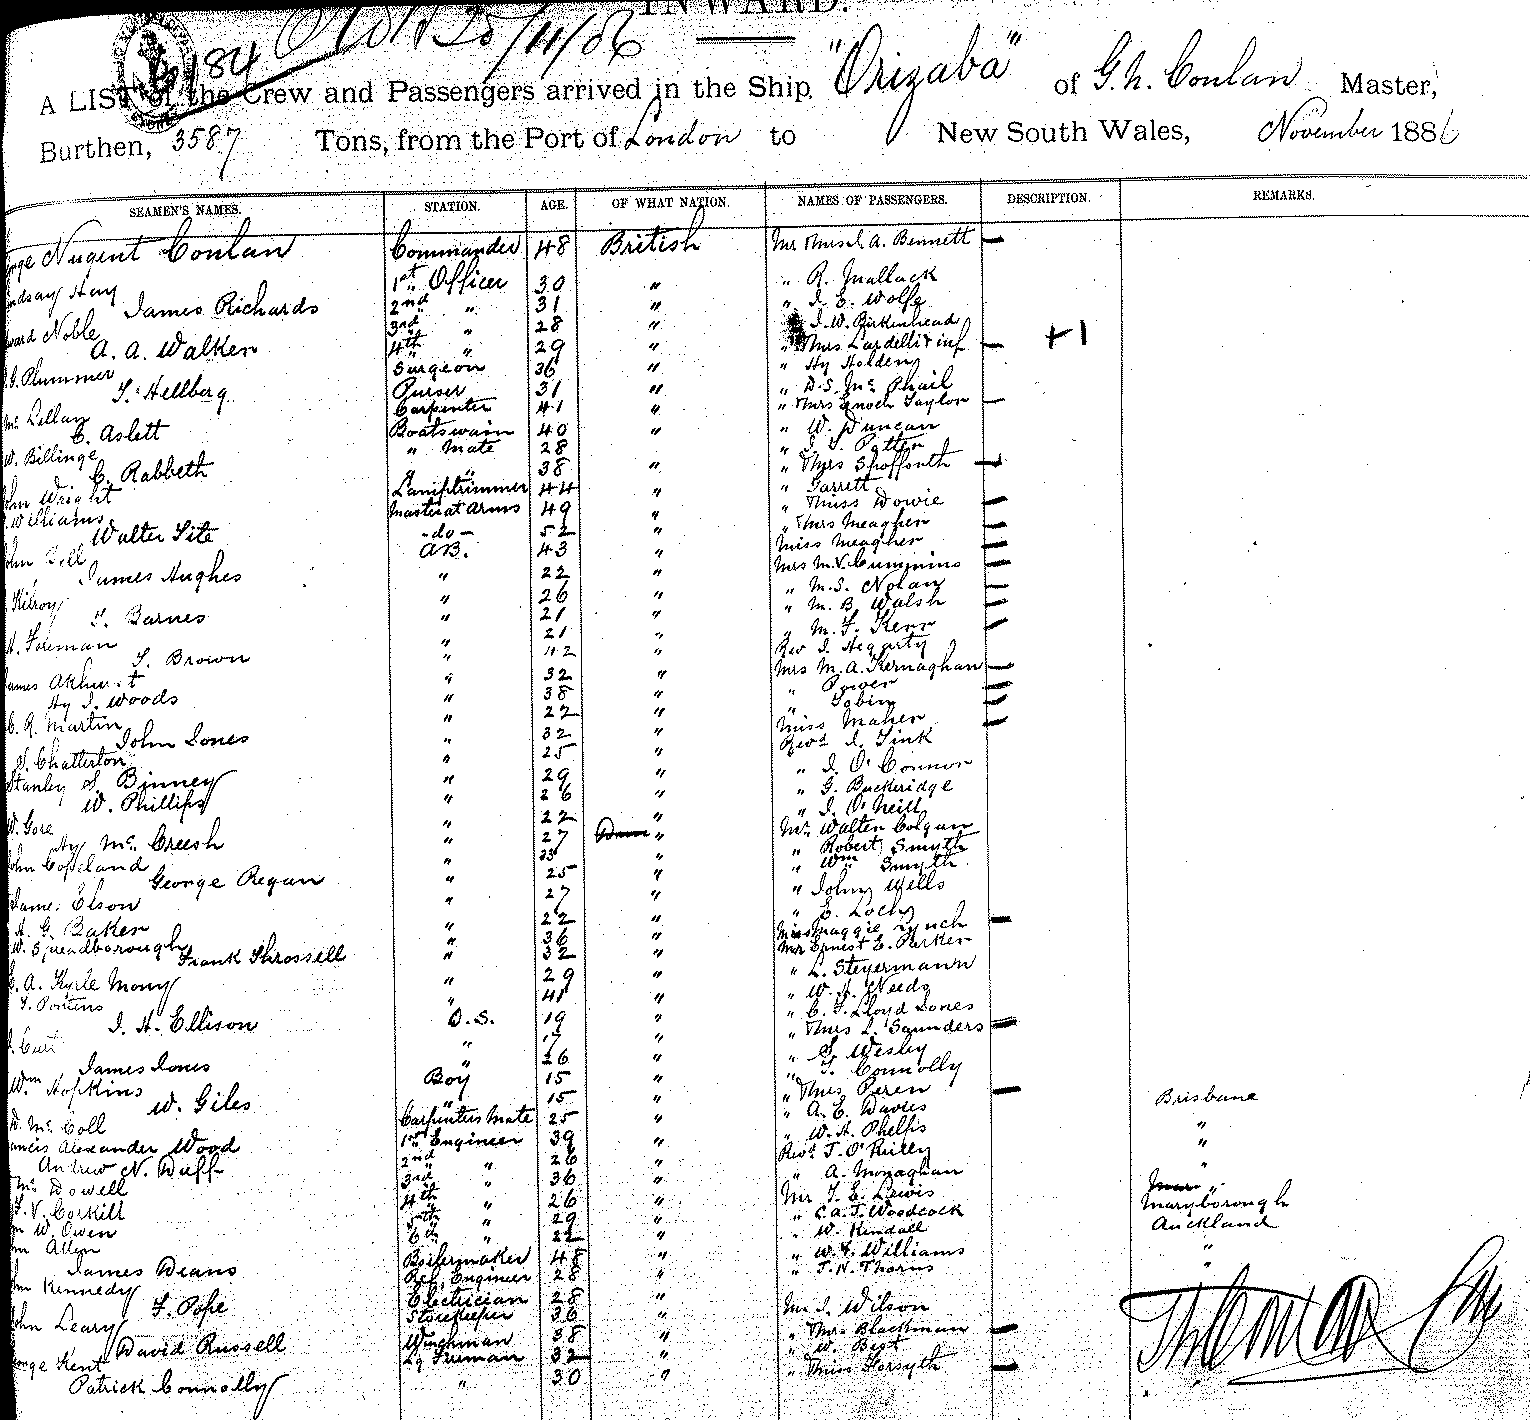 INWARD.
184
25/11/86
A LIST of the Crew and Passengers arrived in the Ship "Orizaba" of G. N. Conlan Master,
Burthen, 3587 Tons, from the Port of London to New South Wales, November 1886
SEAMEN'S NAMES. STATION. AGE. OF WHAT NATION. NAMES OF PASSENGERS. DESCRIPTION. REMARKS.
Nugent Conlan Commander 48 British Mr A. Bennett —
Hay 1st Officer 30 " " R. Mallack
James Richards 2nd " 31 " " J. E. Wolfe
Noble 3rd " 28 " " J. W. Birkenhead
A. A. Walker 4th " 29 " " Mrs Lardelli & inf — +1
Plummer Surgeon 36 " " Hy Holden
T. Hellberg Purser 31 " " D. S. Mc Phail
Mc Lellan Carpenter 41 " " Mrs Enoch Taylor —
C. Aslett Boatswain 40 " " W. Duncan
W. Billinge " Mate 28 " Patten
C. Rabbeth " " 38 " " Mrs Spofforth —
John Wright Lamptrimmer 44 " " Garrett
Williams Master at Arms 49 " " Miss Dowie —
Walter Tite - do - 52 " " Mrs Meagher —
John AB. 43 " Miss Meagher —
James Hughes " 22 " Mrs M. V. Cummins —
Kilroy " 26 " " M. S. Nolan —
T. Barnes " 21 " " M. B. Walsh —
Foreman " 21 " " M. F. Kerr —
T. Brown " 42 " Rev J. Hegarty
James Akhurst " 32 " Mrs M. A. Kernaghan —
Hy J. Woods " 38 " " Power —
C. R. Martin " 22 " " Tobin —
John Jones " 32 " Miss Maher —
Chatterton " 25 " Revd J. Fink
Stanley S. Binney " 29 " " J. O'Connor
W. Phillips " 26 " " G. Buckeridge
W. Gore " 22 " " J. O'Neill
Hy Mc Creesh " 27 " Mr Walter Colgan
John Copeland " 33 " " Robert Smyth
George Regan " 25 " " Wm Smyth
James Elson " 27 " " John Wells
A. G. Baker " 22 " " E. Loch
W. Spreadborough " 36 " Miss Maggie Lynch —
Frank Throssell " 32 " Mr Ernest E. Parker
A. Kyrle Mony " 29 " " L. Steyermann
T. Porteus " 41 " " W. H. Needs
J. H. Ellison O.S. 19 " " C. F. Lloyd Jones
" 17 " " Mrs L. Saunders —
James Jones " 26 " " Wesley
Wm Hopkins Boy 15 " " T. Connolly
W. Giles " 15 " " Mrs Peren — Brisbane
Mc Coll Carpenters Mate 25 " " A. E. Davies "
Francis Alexander Wood 1st Engineer 39 " " W. A. Phelps "
Andrew N. Duff 2nd " 26 " Revd T. O'Reilly "
Mc Dowell 3rd " 36 " " A. Monaghan "
T. V. Corkill 4th " 26 " Mr T. E. Lewis Maryborough
W. Owen 5th " 29 " " C. A. T. Woodcock Auckland
Allen 6th " 22 " " W. Kendall "
James Deans Boilermaker 48 " " W. Y. Williams "
John Kennedy Ref. Engineer 28 " " T. H. Thorns
T. Pope Electrician 28 "
John Leary Storekeeper 36 " Mr J. Wilson
David Russell Winchman 38 " " Mrs Blackman —
George Kent Ldg Fireman 32 " " W. Best
Patrick Connolly " 30 " " Miss Forsyth —